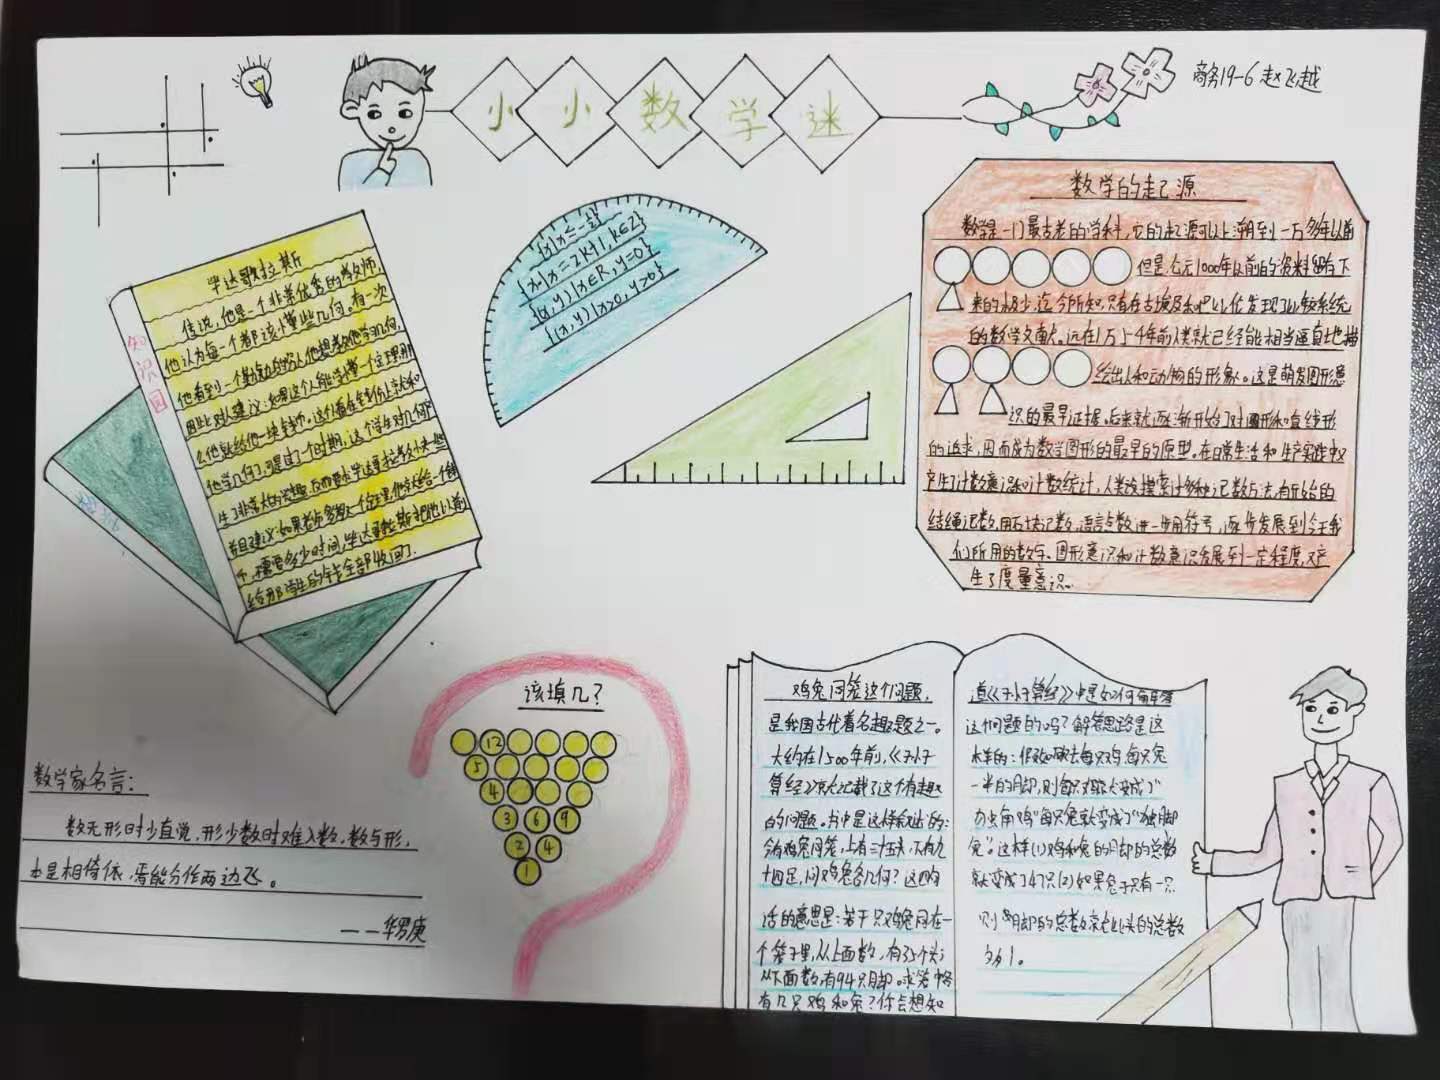 小小数学迷
商务19-6 赵飞越
知识园
毕达哥拉斯
传说,他是一个非常优秀的教师,
他认为每一个都该懂些几何。有一次
他看到一个勤勉的穷人他想教他学习几何,
因此对人建议:如果这个人能学懂一个定理,那
么他就给他一块钱币。这个人看在钱份上就和
他学几何了,可是过了一个时期,这个学生对几何产
生了非常大的兴趣,反而要求毕达哥拉教快一些
并且建议:如果老师多教一个定理,他就给一个钱
币,需要多少时间,毕达哥拉斯把他以前
给那学生的钱全部收回了.
{x|x=2k+1,k∈Z}
{(x,y)|x∈R,y=0}
{(x,y)|x>0,y>0}
数学的起源
数学是一门最古老的学科,它的起源可以上溯到一万多年以前
但是,公元1000年以前的资料留存下
来的极少。迄今所知,只有在古埃及和巴比伦发现了比较系统
的数学文献。远在1万5千年前人类就已经能相当逼真地描
绘出人和动物的形象。这是萌发图形意
识的最早证据。后来就逐渐开始了对圆形和直线形
的追求,因而成为数学图形的最早的原型。在日常生活和生产实践中又
产生了计数意识和计数统计,人类改摸索过多种记数方法,有开始的
结绳记数,用石块记数,语言点数进一步用符号,逐步发展到今天我
们所用的数字。图形意识和计数意识发展到一定程度,又产
生了度量意识.
该填几?
12
5
4
3 6 9
2 4
1
数学家名言:
数无形时少直觉,形少数时难入数,数与形,
本是相倚依,焉能分作两边飞。
——华罗庚
鸡兔同笼这个问题,
是我国古代着名趣题之一。
大约在1500年前,《孙子
算经》就记载了这个有趣
的问题。书中是这样叙述的:
今有鸡兔同笼,上有三十五头,下有九
十四足,问鸡兔各几何?这四句
话的意思是:若干只鸡兔同在一
个笼子里,从上面数,有35个头;
从下面数,有94只脚。求笼中各
有几只鸡和兔?你会想知
道《孙子算经》中是如何解答
这个问题的吗?解答思路是这
样的:假如砍去每只鸡、每只兔
一半的脚,则每只鸡就变成了“
独角鸡”每只兔就变成了“双脚
兔”。这样(1)鸡和兔的脚的总数
就变成了47只(2)如果兔子只有一只
则脚的总数就比头的总数
多1。